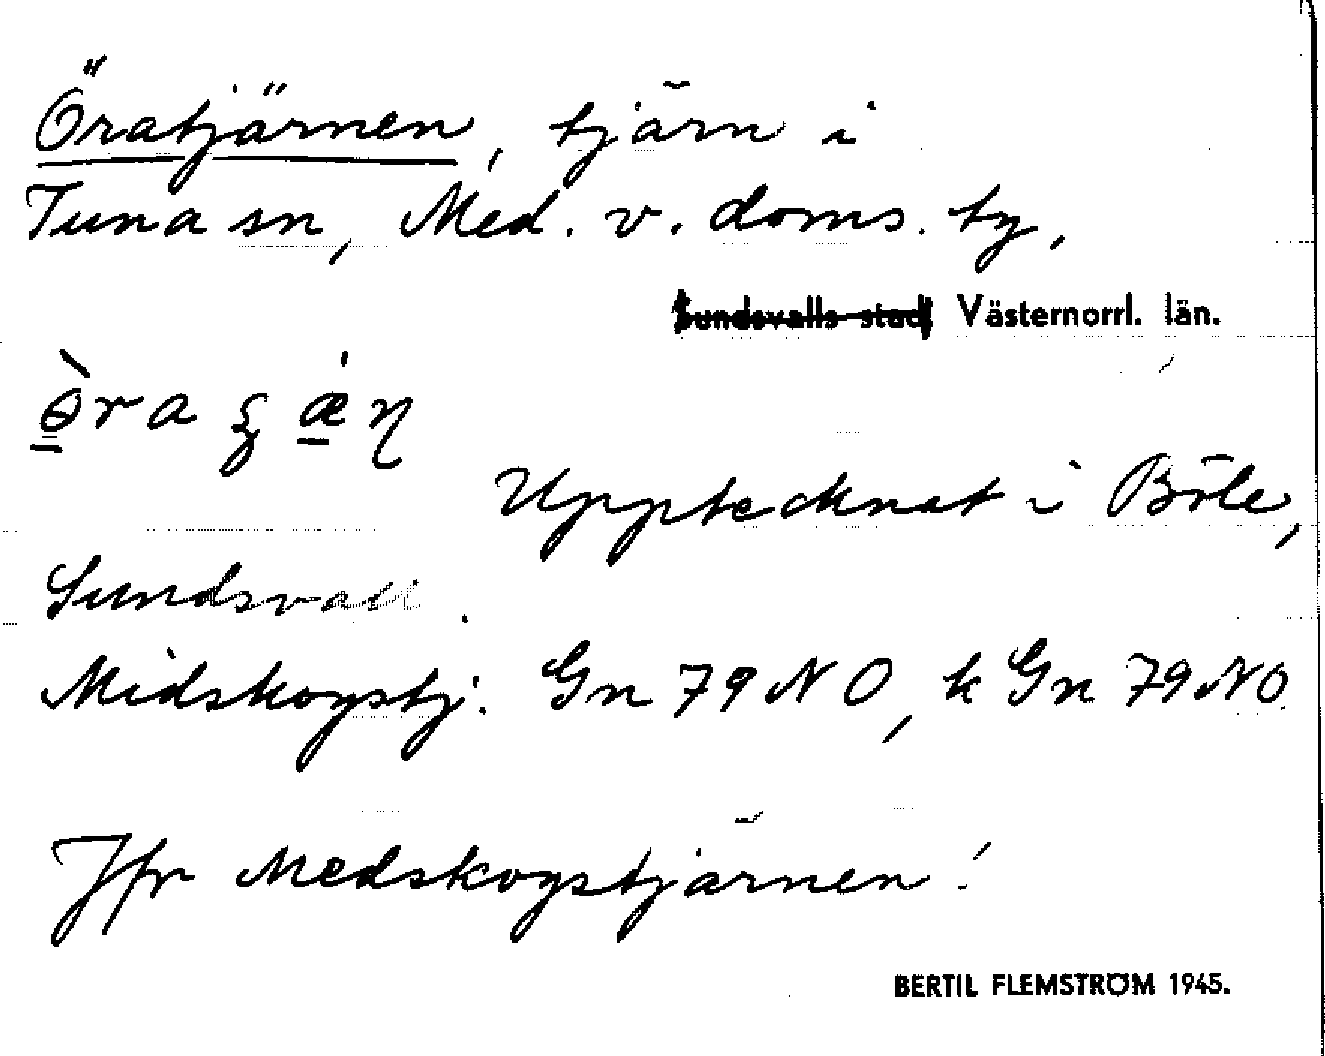 Öratjärnen, tjärn i
Tuna sn, Med. v. doms. tg.
Sundsvalls stad, Västernorrl. län.
Upptecknat i Böle,
Sundsvall.
Midskogstj. Gn 79 NO, k Gn 79 NO
Jfr Medskogstjärnen!
BERTIL FLEMSTRÖM 1945.